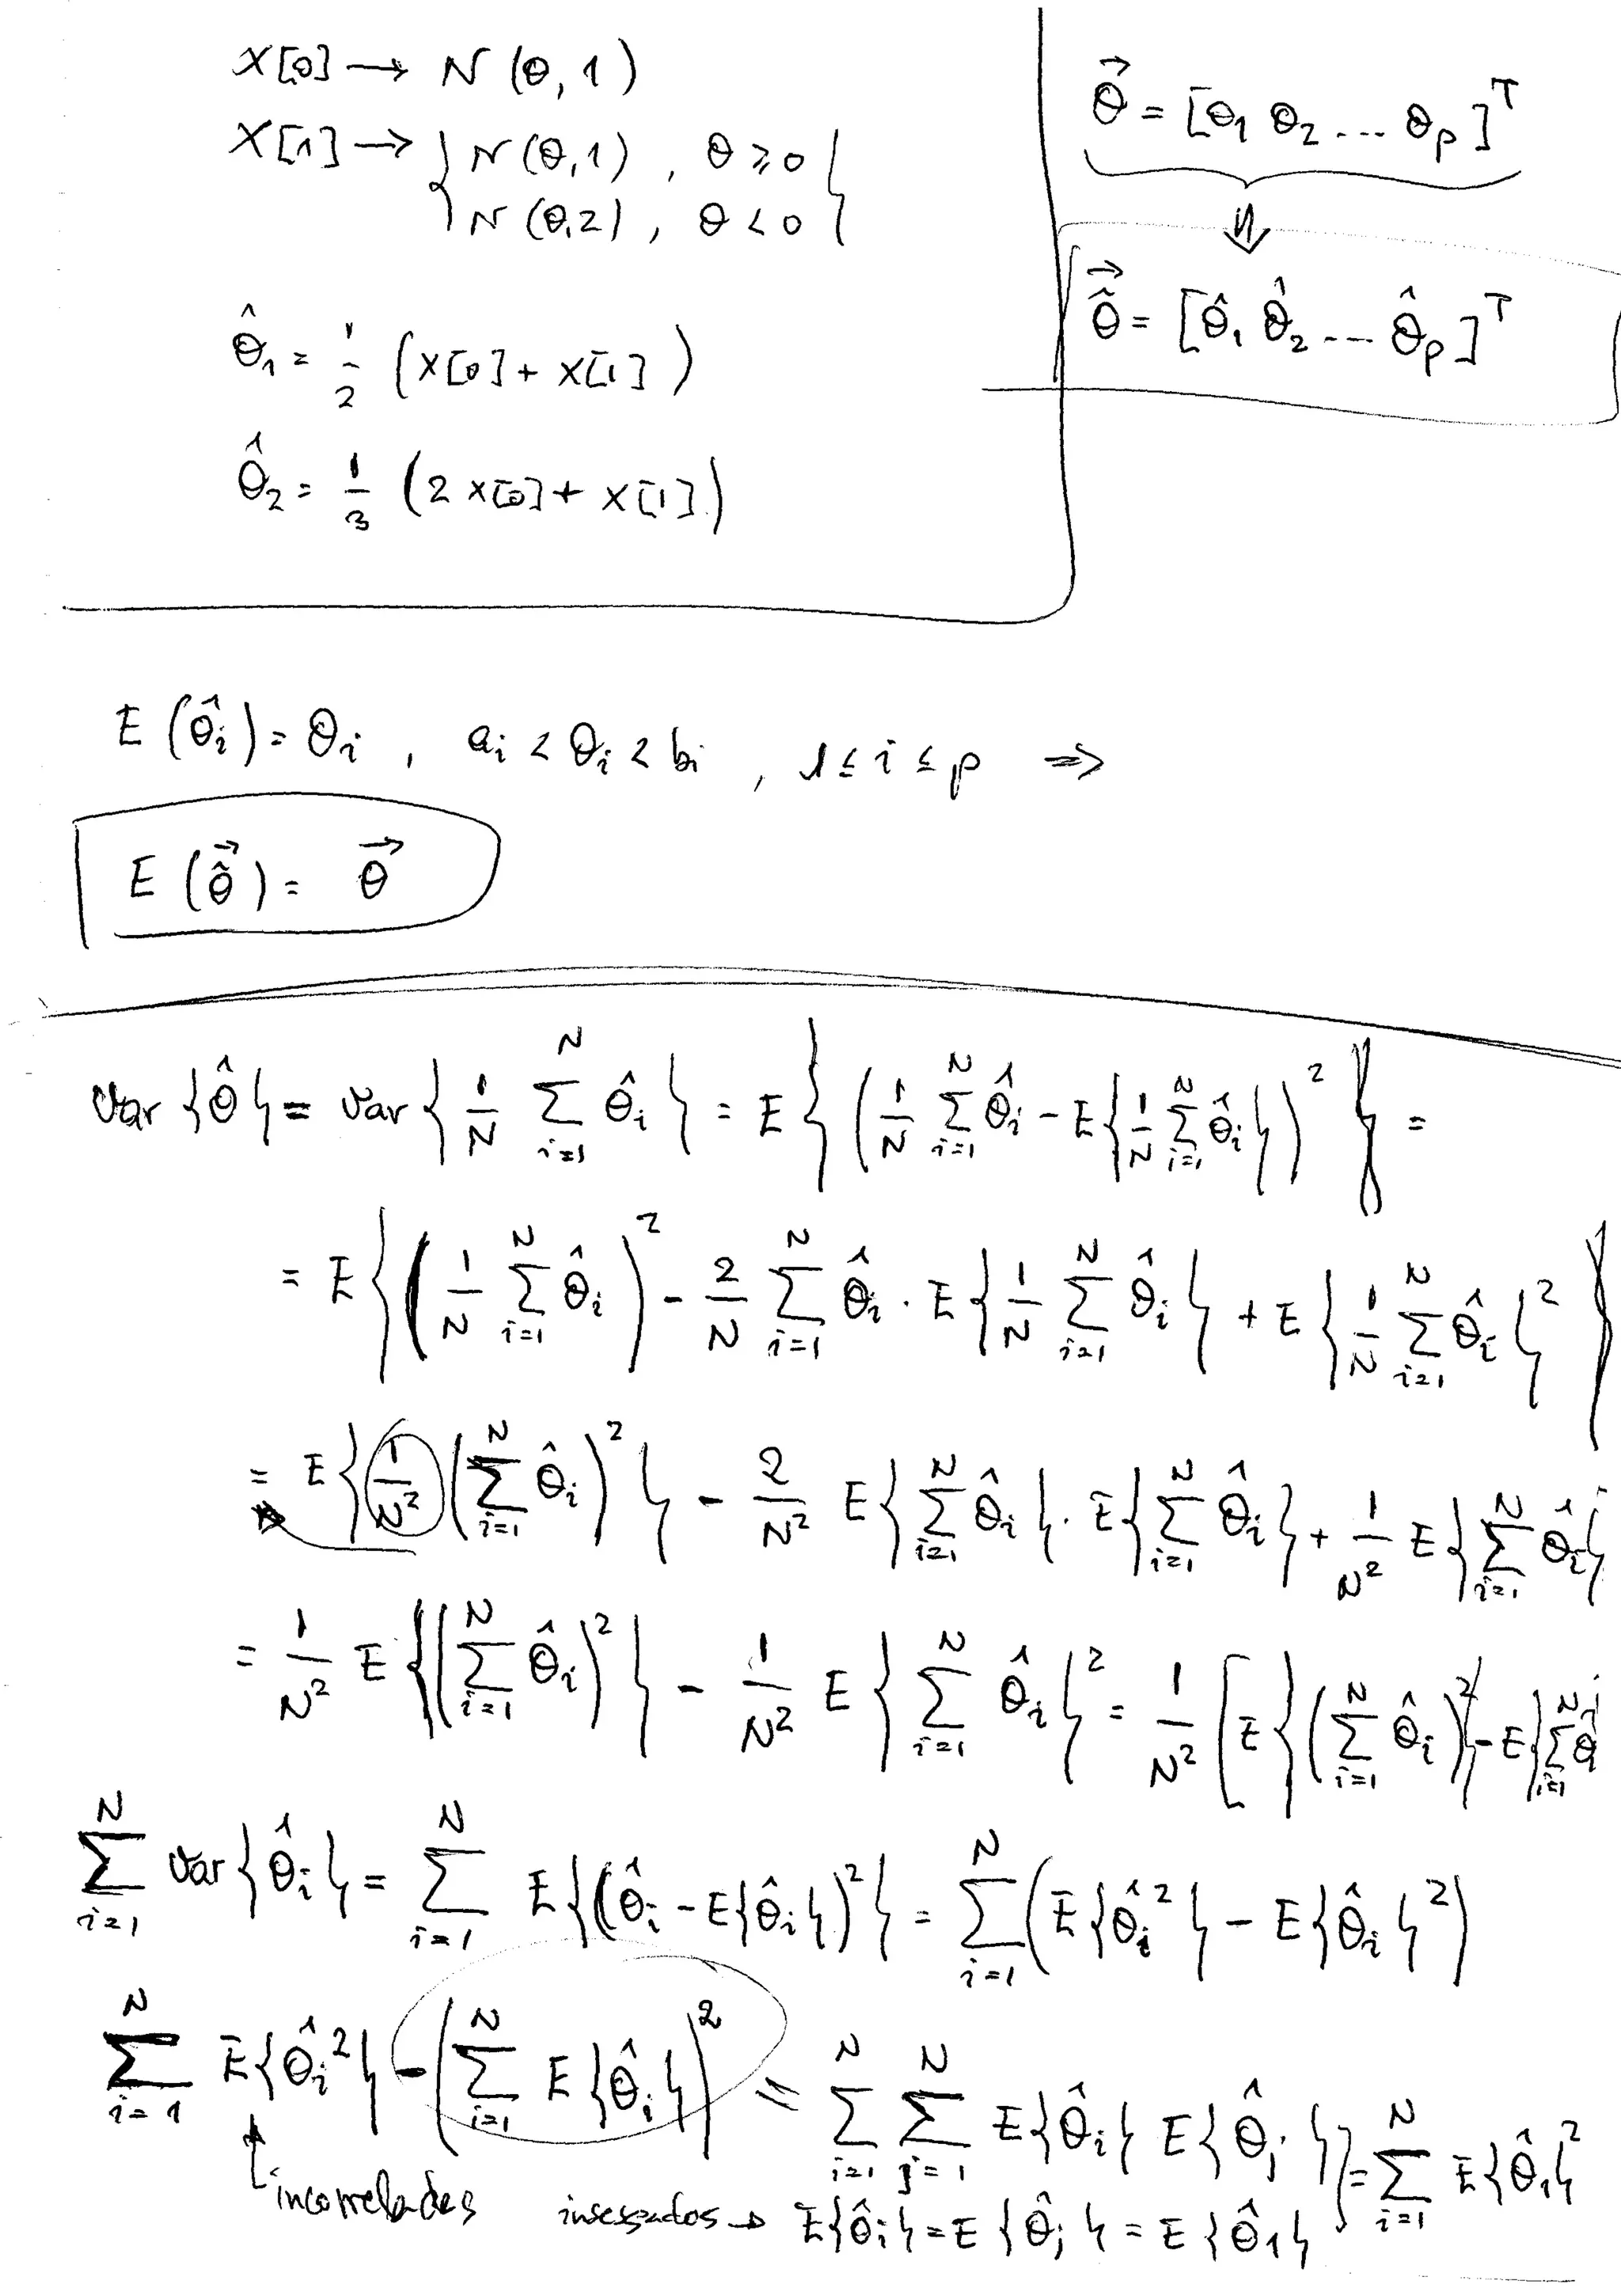 X[0] → N(θ, 1)
X[1] → { N(θ,1) , θ ⩾ 0
N(θ,2) , θ < 0 }
θ̂₁ = 1/2 (X[0] + X[1])
θ̂₂ = 1/3 (2 X[0] + X[1])
θ⃗ = [θ₁ θ₂ ... θp]ᵀ
⇓
θ̂⃗ = [θ̂₁ θ̂₂ ... θ̂p]ᵀ
E(θ̂i) = θi , ai < θi < bi , 1 ≤ i ≤ p ⇒
E(θ̂⃗) = θ⃗
Var{θ̂} = Var{1/N Σ_{i=1}^{N} θ̂i} = E{(1/N Σ_{i=1}^{N} θ̂i − E{1/N Σ_{i=1}^{N} θ̂i})²} =
= E{(1/N Σ_{i=1}^{N} θ̂i)² − 2/N Σ_{i=1}^{N} θ̂i · E{1/N Σ_{i=1}^{N} θ̂i} + E{1/N Σ_{i=1}^{N} θ̂i}²}
= E{1/N² (Σ_{i=1}^{N} θ̂i)²} − 2/N² E{Σ_{i=1}^{N} θ̂i} · E{Σ_{i=1}^{N} θ̂i} + 1/N² E{Σ_{i=1}^{N} θ̂i}
= 1/N² E{(Σ_{i=1}^{N} θ̂i)²} − 1/N² E{Σ_{i=1}^{N} θ̂i}² = 1/N² [E{(Σ_{i=1}^{N} θ̂i)²} − E{Σ_{i=1}^{N} θ̂i
Σ_{i=1}^{N} Var{θ̂i} = Σ_{i=1}^{N} E{(θ̂i − E{θ̂i})²} = Σ_{i=1}^{N} (E{θ̂i²} − E{θ̂i}²)
Σ_{i=1}^{N} E{θ̂i²} − (Σ_{i=1}^{N} E{θ̂i})² = Σ_{i=1}^{N} Σ_{j=1}^{N} E{θ̂i} E{θ̂j} = Σ_{i=1}^{N} E{θ̂₁}²
incorrelades insesgados → E{θ̂i} = E{θ̂j} = E{θ̂₁}